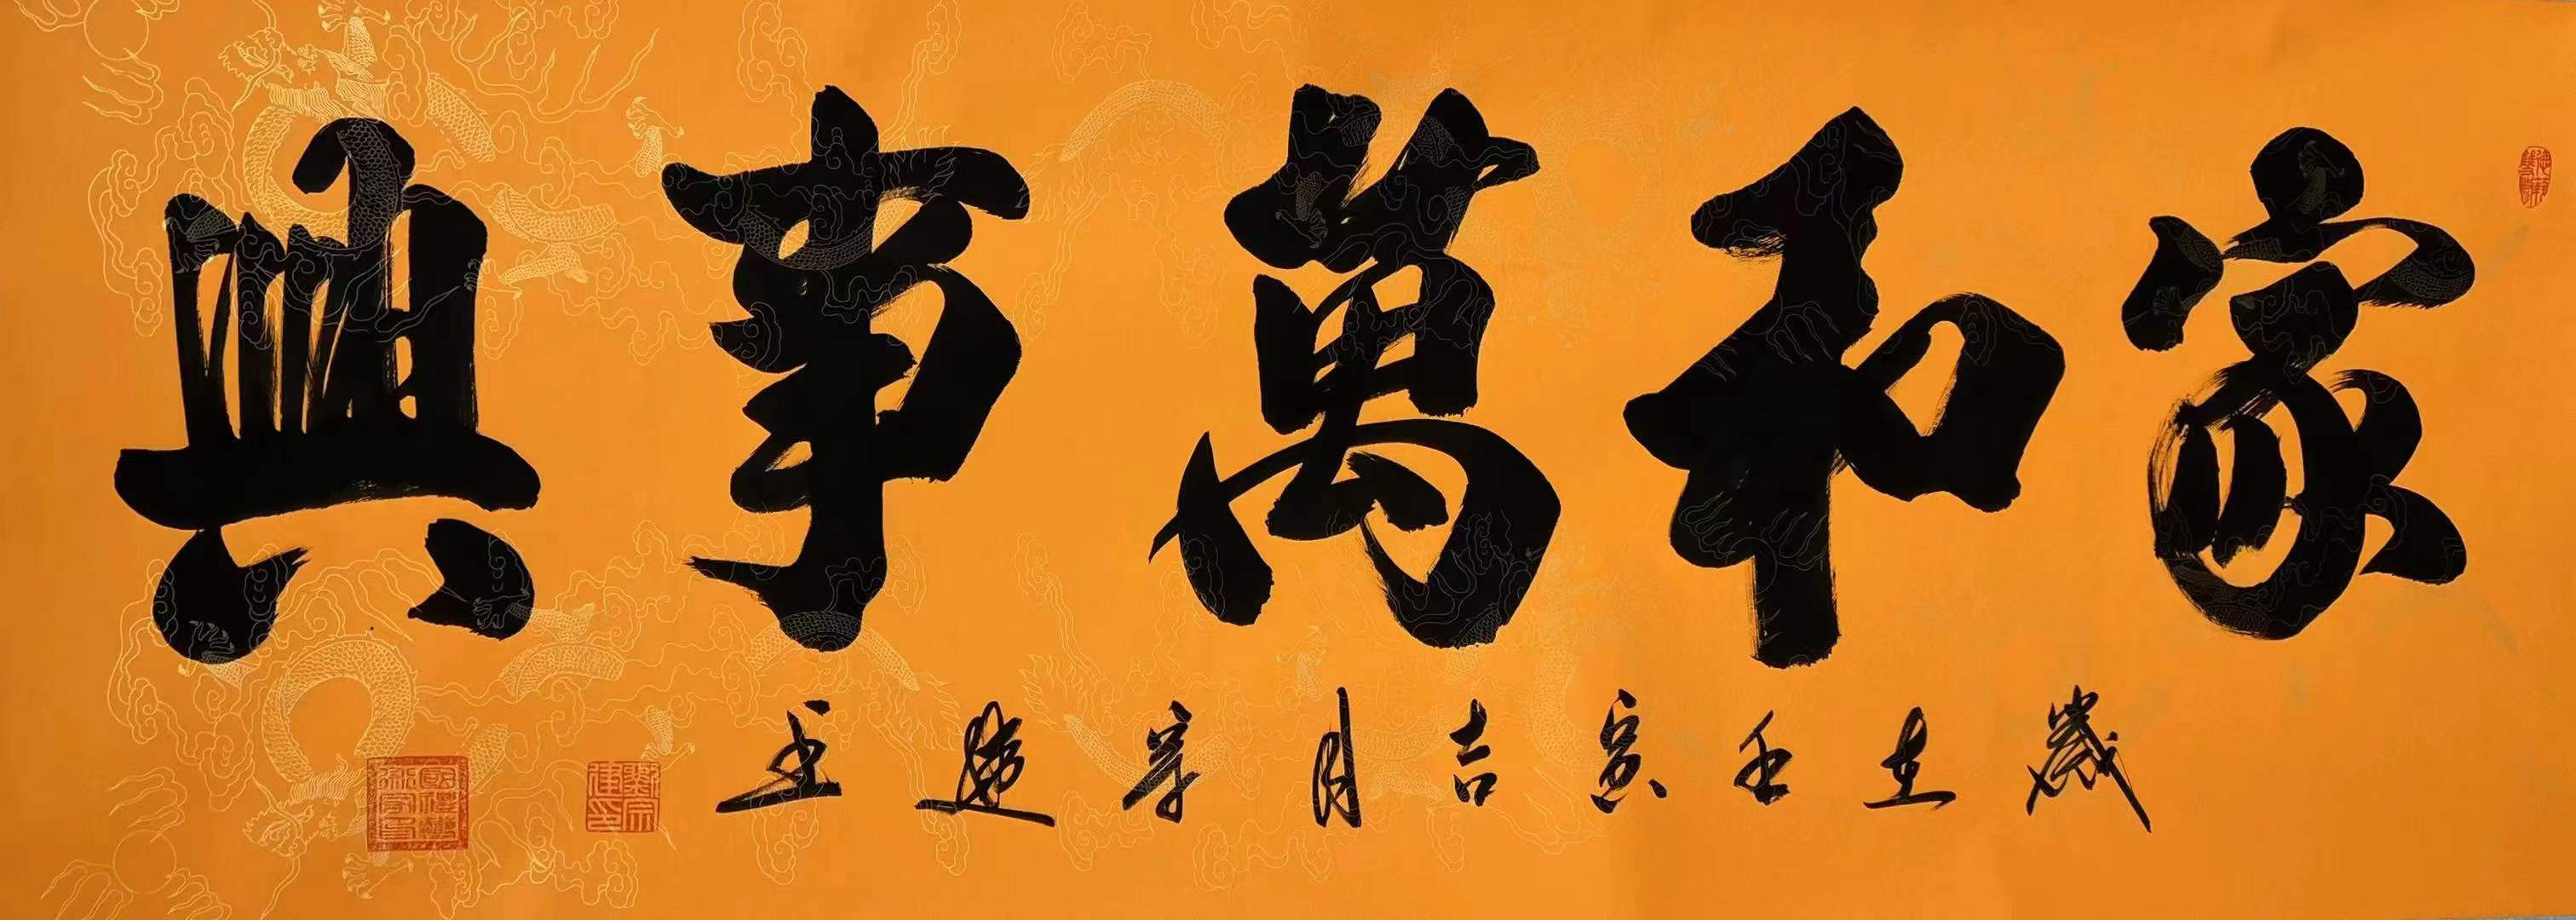 家和萬事興
歲在壬寅吉月宗建